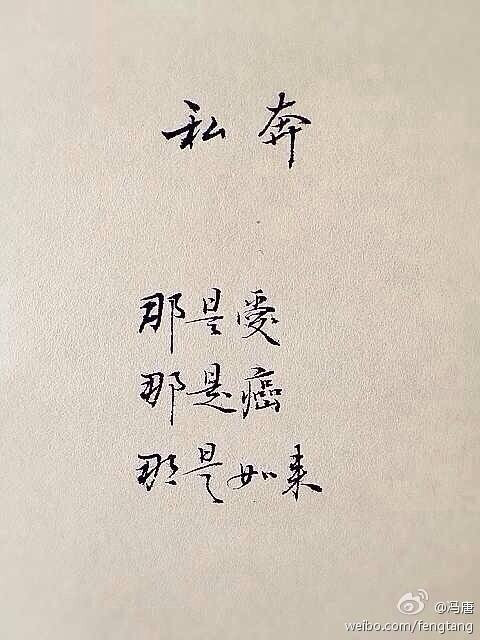 私奔
那是愛
那是癌
那是如来
@冯唐
weibo.com/fengtang